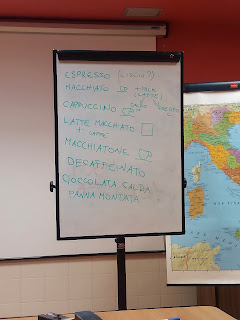 ESPRESSO (LISCIO?)
MACCHIATO + POCO
(LATTE)
CAPPUCCINO CALDO
LATTE MACCHIATO
+ CAFFÈ
MACCHIATONE
DECAFFEINATO
CIOCCOLATA CALDA
PANNA MONTATA